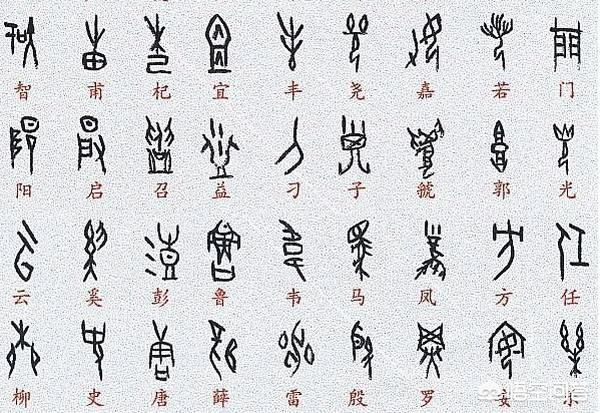 智 甫 杞 宜 丰 尧 嘉 若 门
阳 启 召 益 刁 子 虢 郭 光
云 奚 彭 鲁 韦 马 凤 方 任
柳 史 唐 薛 雷 殷 罗 安 乐
悟空问答